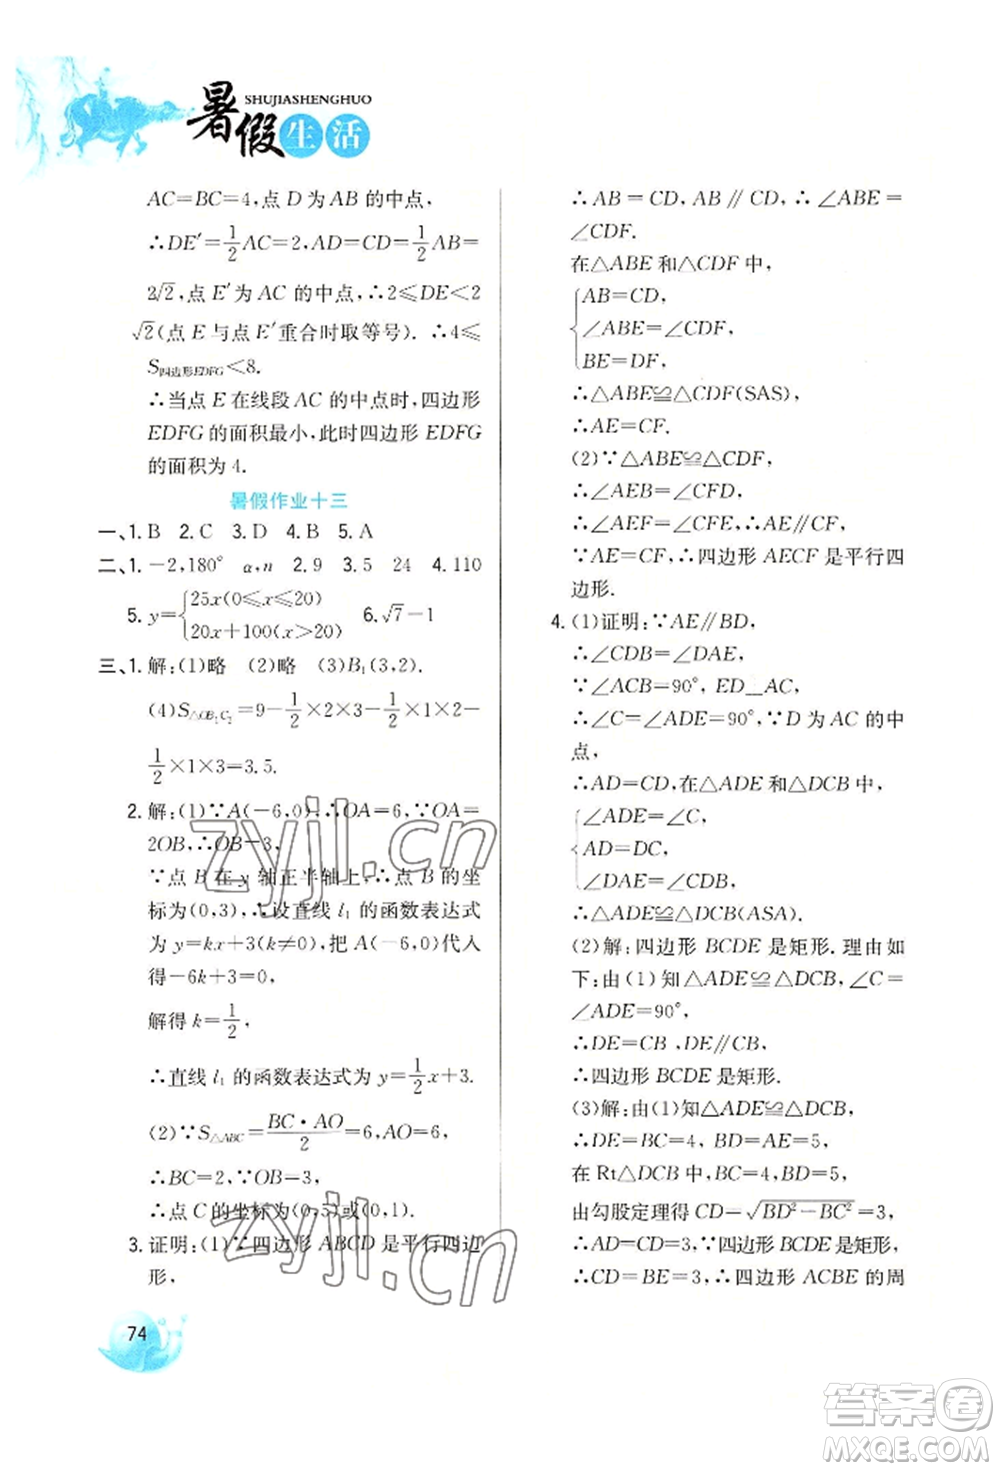 SHUJIASHENGHUO
暑假生活
AC=BC=4,点 D 为 AB 的中点,
∴DE′=1/2AC=2,AD=CD=1/2AB=
2√2,点 E′为 AC 的中点,∴2≤DE<2
√2(点 E 与点 E′重合时取等号). ∴4≤
S四边形EDFG<8.
∴当点 E 在线段 AC 的中点时,四边形
EDFG 的面积最小,此时四边形 EDFG
的面积为 4.
暑假作业十三
一、1. B 2. C 3. D 4. B 5. A
二、1. −2,180° α,n 2. 9 3. 5 24 4. 110
5. y={25x(0≤x≤20)
20x+100(x>20) 6. √7−1
三、1. 解:(1)略 (2)略 (3)B₁(3,2).
(4)S△OB₂C₂=9−1/2×2×3−1/2×1×2−
1/2×1×3=3.5.
2. 解:(1)∵A(−6,0),∴OA=6,∵OA=
2OB,∴OB=3,
∵点 B 在 y 轴正半轴上,∴点 B 的坐
标为(0,3),∴设直线 l₁ 的函数表达式
为 y=kx+3(k≠0),把 A(−6,0)代入
得−6k+3=0,
解得 k=1/2,
∴直线 l₁ 的函数表达式为 y=1/2x+3.
(2)∵S△ABC=BC·AO/2=6,AO=6,
∴BC=2,∵OB=3,
∴点 C 的坐标为(0,5)或(0,1).
3. 证明:(1)∵四边形 ABCD 是平行四边
形,
74
∴AB=CD,AB∥CD,∴∠ABE=
∠CDF.
在△ABE 和△CDF 中,
{AB=CD,
∠ABE=∠CDF,
BE=DF,
∴△ABE≌△CDF(SAS),
∴AE=CF.
(2)∵△ABE≌△CDF,
∴∠AEB=∠CFD,
∴∠AEF=∠CFE,∴AE∥CF,
∵AE=CF,∴四边形 AECF 是平行四
边形.
4. (1)证明:∵AE∥BD,
∴∠CDB=∠DAE,
∵∠ACB=90°,ED⊥AC,
∴∠C=∠ADE=90°,∵D 为 AC 的中
点,
∴AD=CD,在△ADE 和△DCB 中,
{∠ADE=∠C,
AD=DC,
∠DAE=∠CDB,
∴△ADE≌△DCB(ASA).
(2)解:四边形 BCDE 是矩形. 理由如
下:由(1)知△ADE≌△DCB,∠C=
∠ADE=90°,
∴DE=CB,DE∥CB,
∴四边形 BCDE 是矩形.
(3)解:由(1)知△ADE≌△DCB,
∴DE=BC=4,BD=AE=5,
在 Rt△DCB 中,BC=4,BD=5,
由勾股定理得 CD=√BD²−BC²=3,
∴AD=CD=3,∵四边形 BCDE 是矩形,
∴CD=BE=3,∴四边形 ACBE 的周
zyjl.cn
zyjl.cn
答案圈
MXQE.COM